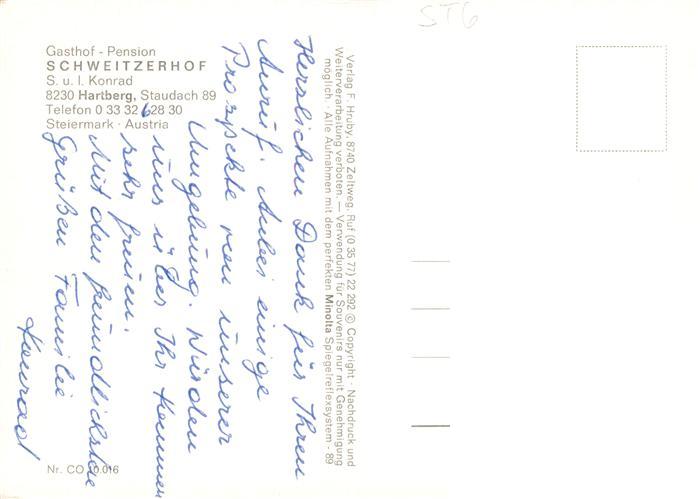 ST6
Gasthof - Pension
SCHWEITZERHOF
S. u. I. Konrad
8230 Hartberg, Staudach 89
Telefon 0 33 32 / 628 30
Steiermark · Austria
Herzlichen Dank für Ihren
Anruf. Anbei einige
Prospekte von unserer
Umgebung. Würden
uns über Ihr Kommen
sehr freuen.
Mit den freundlichsten
Grüßen Familie
Konrad
Verlag F. Hruby, 8740 Zeltweg, Ruf (0 35 77) 22 292 © Copyright · Nachdruck und
Weiterverarbeitung verboten. — Verwendung für Souvenirs nur mit Genehmigung
möglich. · Alle Aufnahmen mit dem perfekten Minolta Spiegelreflexsystem - 89
Nr. CO 10.016